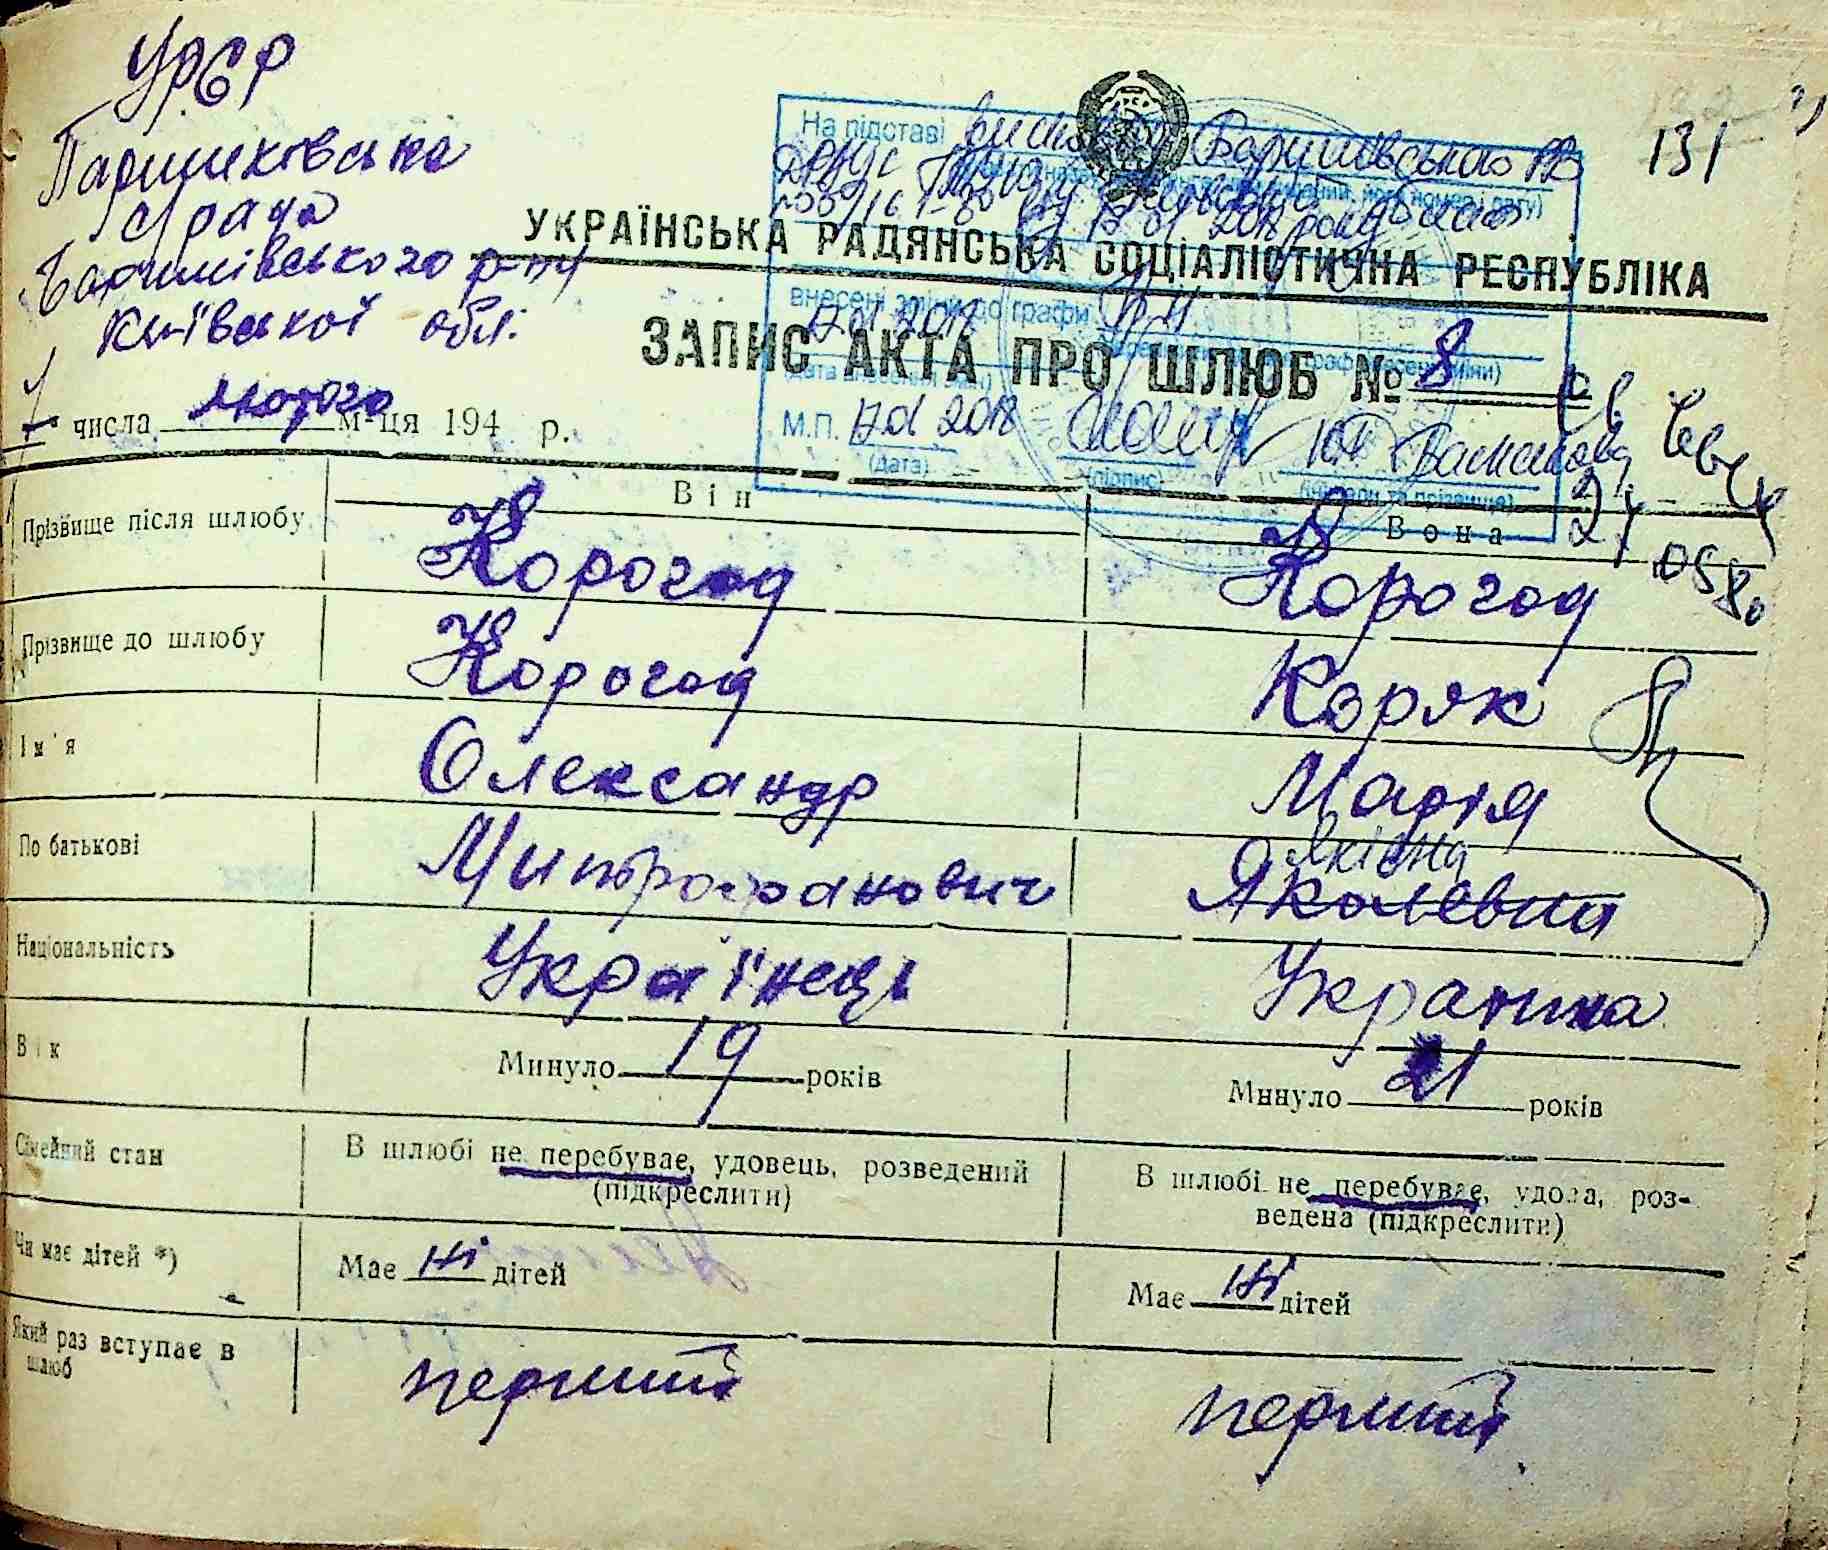 УРСР
Паришківська
с/рада
Баришівського р-ну
Київської обл.
131
На підставі висновку Баришівського РВ
ДРАЦС
УКРАЇНСЬКА РАДЯНСЬКА СОЦІАЛІСТИЧНА РЕСПУБЛІКА
внесені зміни до графи
ЗАПИС АКТА ПРО ШЛЮБ № 8
числа лютого м-ця 194 р.
М.П. 2018
(дата) (підпис) (ініціали та прізвище)
Він Вона
Прізвище після шлюбу Корогод Корогод
Прізвище до шлюбу Корогод Коряк
Ім'я Олександр Марія
По батькові Митрофанович Яківна
Яколевна
Національність Українець Украінка
Вік Минуло 19 років Минуло 21 років
Сімейний стан В шлюбі не перебуває, удовець, розведений (підкреслити) В шлюбі не перебуває, удова, роз-
ведена (підкреслити)
Чи має дітей *) Має ні дітей Має ні дітей
Який раз вступає в
шлюб перший перший